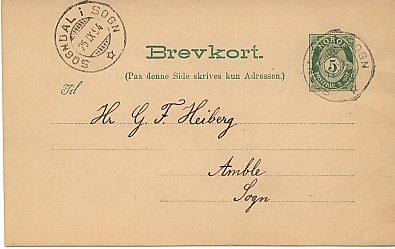 SOGNDAL i SOGN
25 IX 94
Brevkort.
NORGE
5
(Paa denne Side skrives kun Adressen.)
Til
Hr G. F. Heiberg
Amble
Sogn